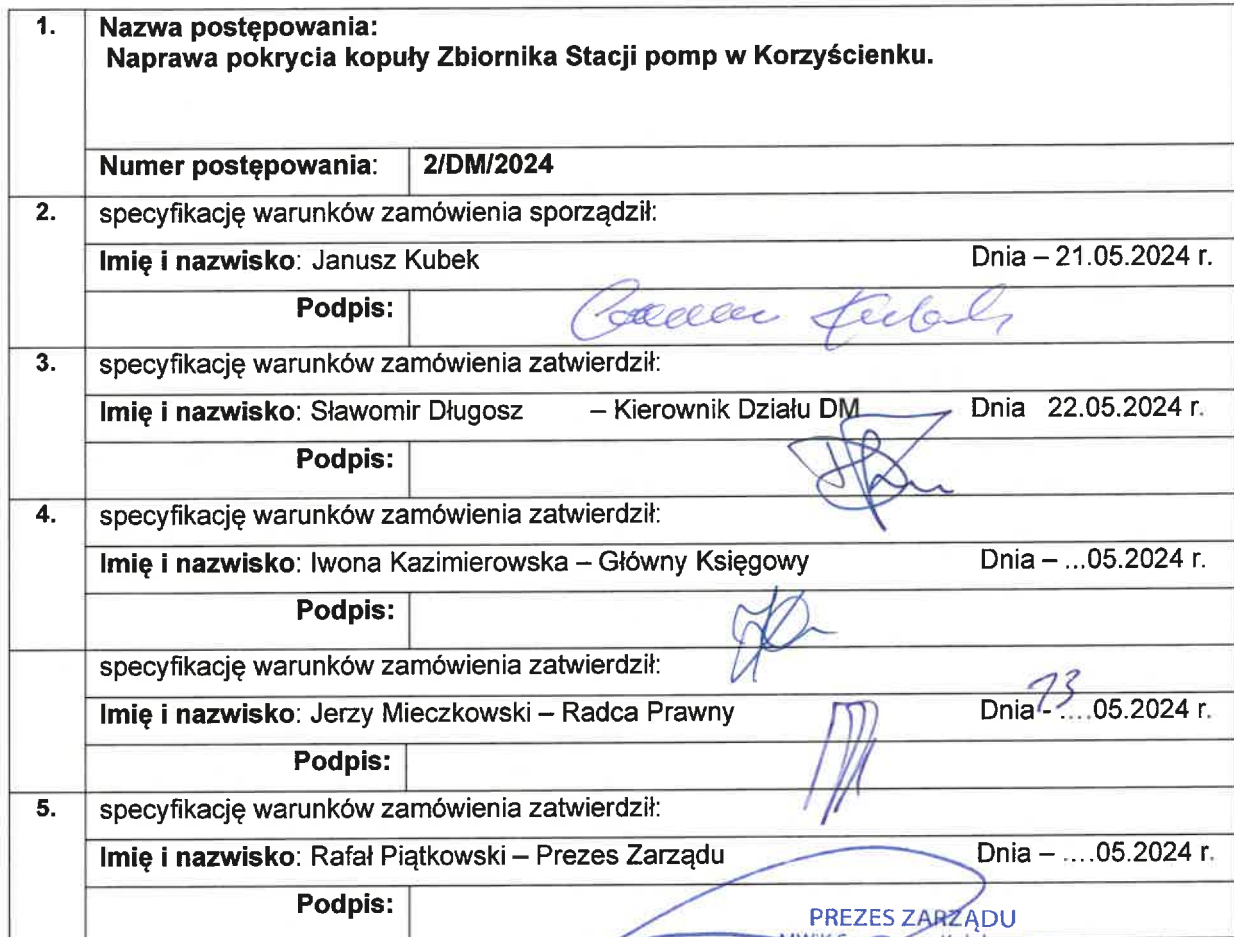 1. Nazwa postępowania:
Naprawa pokrycia kopuły Zbiornika Stacji pomp w Korzyścienku.
Numer postępowania: 2/DM/2024
2. specyfikację warunków zamówienia sporządził:
Imię i nazwisko: Janusz Kubek Dnia – 21.05.2024 r.
Podpis:
3. specyfikację warunków zamówienia zatwierdził:
Imię i nazwisko: Sławomir Długosz – Kierownik Działu DM Dnia 22.05.2024 r.
Podpis:
4. specyfikację warunków zamówienia zatwierdził:
Imię i nazwisko: Iwona Kazimierowska – Główny Księgowy Dnia – ...05.2024 r.
Podpis:
specyfikację warunków zamówienia zatwierdził:
Imię i nazwisko: Jerzy Mieczkowski – Radca Prawny Dnia - ....05.2024 r.
Podpis:
5. specyfikację warunków zamówienia zatwierdził:
Imię i nazwisko: Rafał Piątkowski – Prezes Zarządu Dnia – ....05.2024 r.
Podpis:
PREZES ZARZĄDU